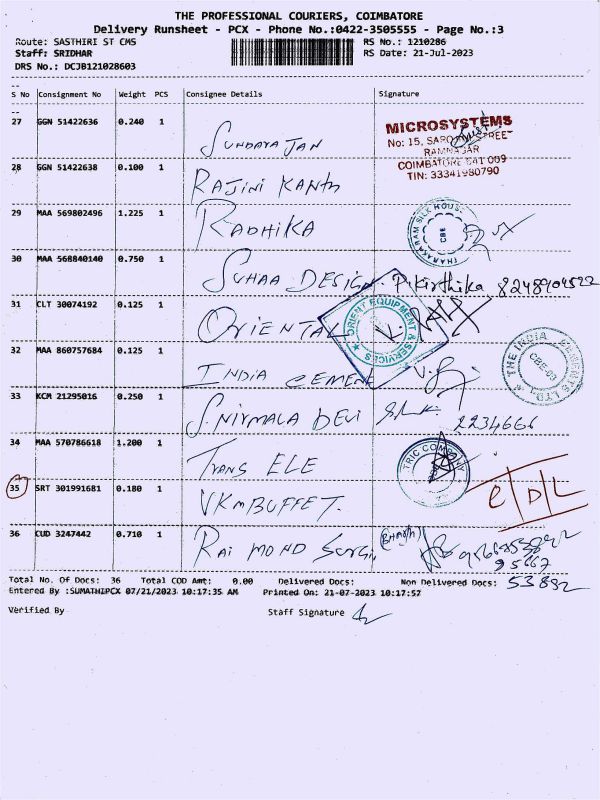 THE PROFESSIONAL COURIERS, COIMBATORE
Delivery Runsheet - PCX - Phone No.:0422-3505555 - Page No.:3
Route: SASTHIRI ST CMS RS No.: 1210286
Staff: SRIDHAR RS Date: 21-Jul-2023
DRS No.: DCJB121028603
S No Consignment No Weight PCS Consignee Details Signature
27 GGN 51422636 0.240 1 SUNDARAJAN
MICROSYSTEMS
No: 15,
RAMNAGAR
COIMBATORE 641 009
TIN: 33341980790
28 GGN 51422638 0.100 1 RAJINI KANTH
29 MAA 569802496 1.225 1 RADHIKA
THARAKARAM SILK HOUSE
CBE
30 MAA 568840140 0.750 1 SUHAA DESIGN P. Kirthika
31 CLT 30074192 0.125 1 ORIENTAL
ORIENT EQUIPMENT & SERVICES
32 MAA 860757684 0.125 1 INDIA CEMENT
THE INDIA CEMENTS LTD.
CBE-03
33 KCM 21295016 0.250 1 S. NIRMALA DEVI 2234666
34 MAA 570786618 1.200 1 TRANS ELE
TRIC COMPANY
35 SRT 301991681 0.180 1 VKM BUFFET.
36 CUD 3247442 0.710 1 RAI MOND
Total No. Of Docs: 36 Total COD Amt: 0.00 Delivered Docs: Non Delivered Docs: 53892
Entered By :SUMATHIPCX 07/21/2023 10:17:35 AM Printed On: 21-07-2023 10:17:57
Verified By Staff Signature